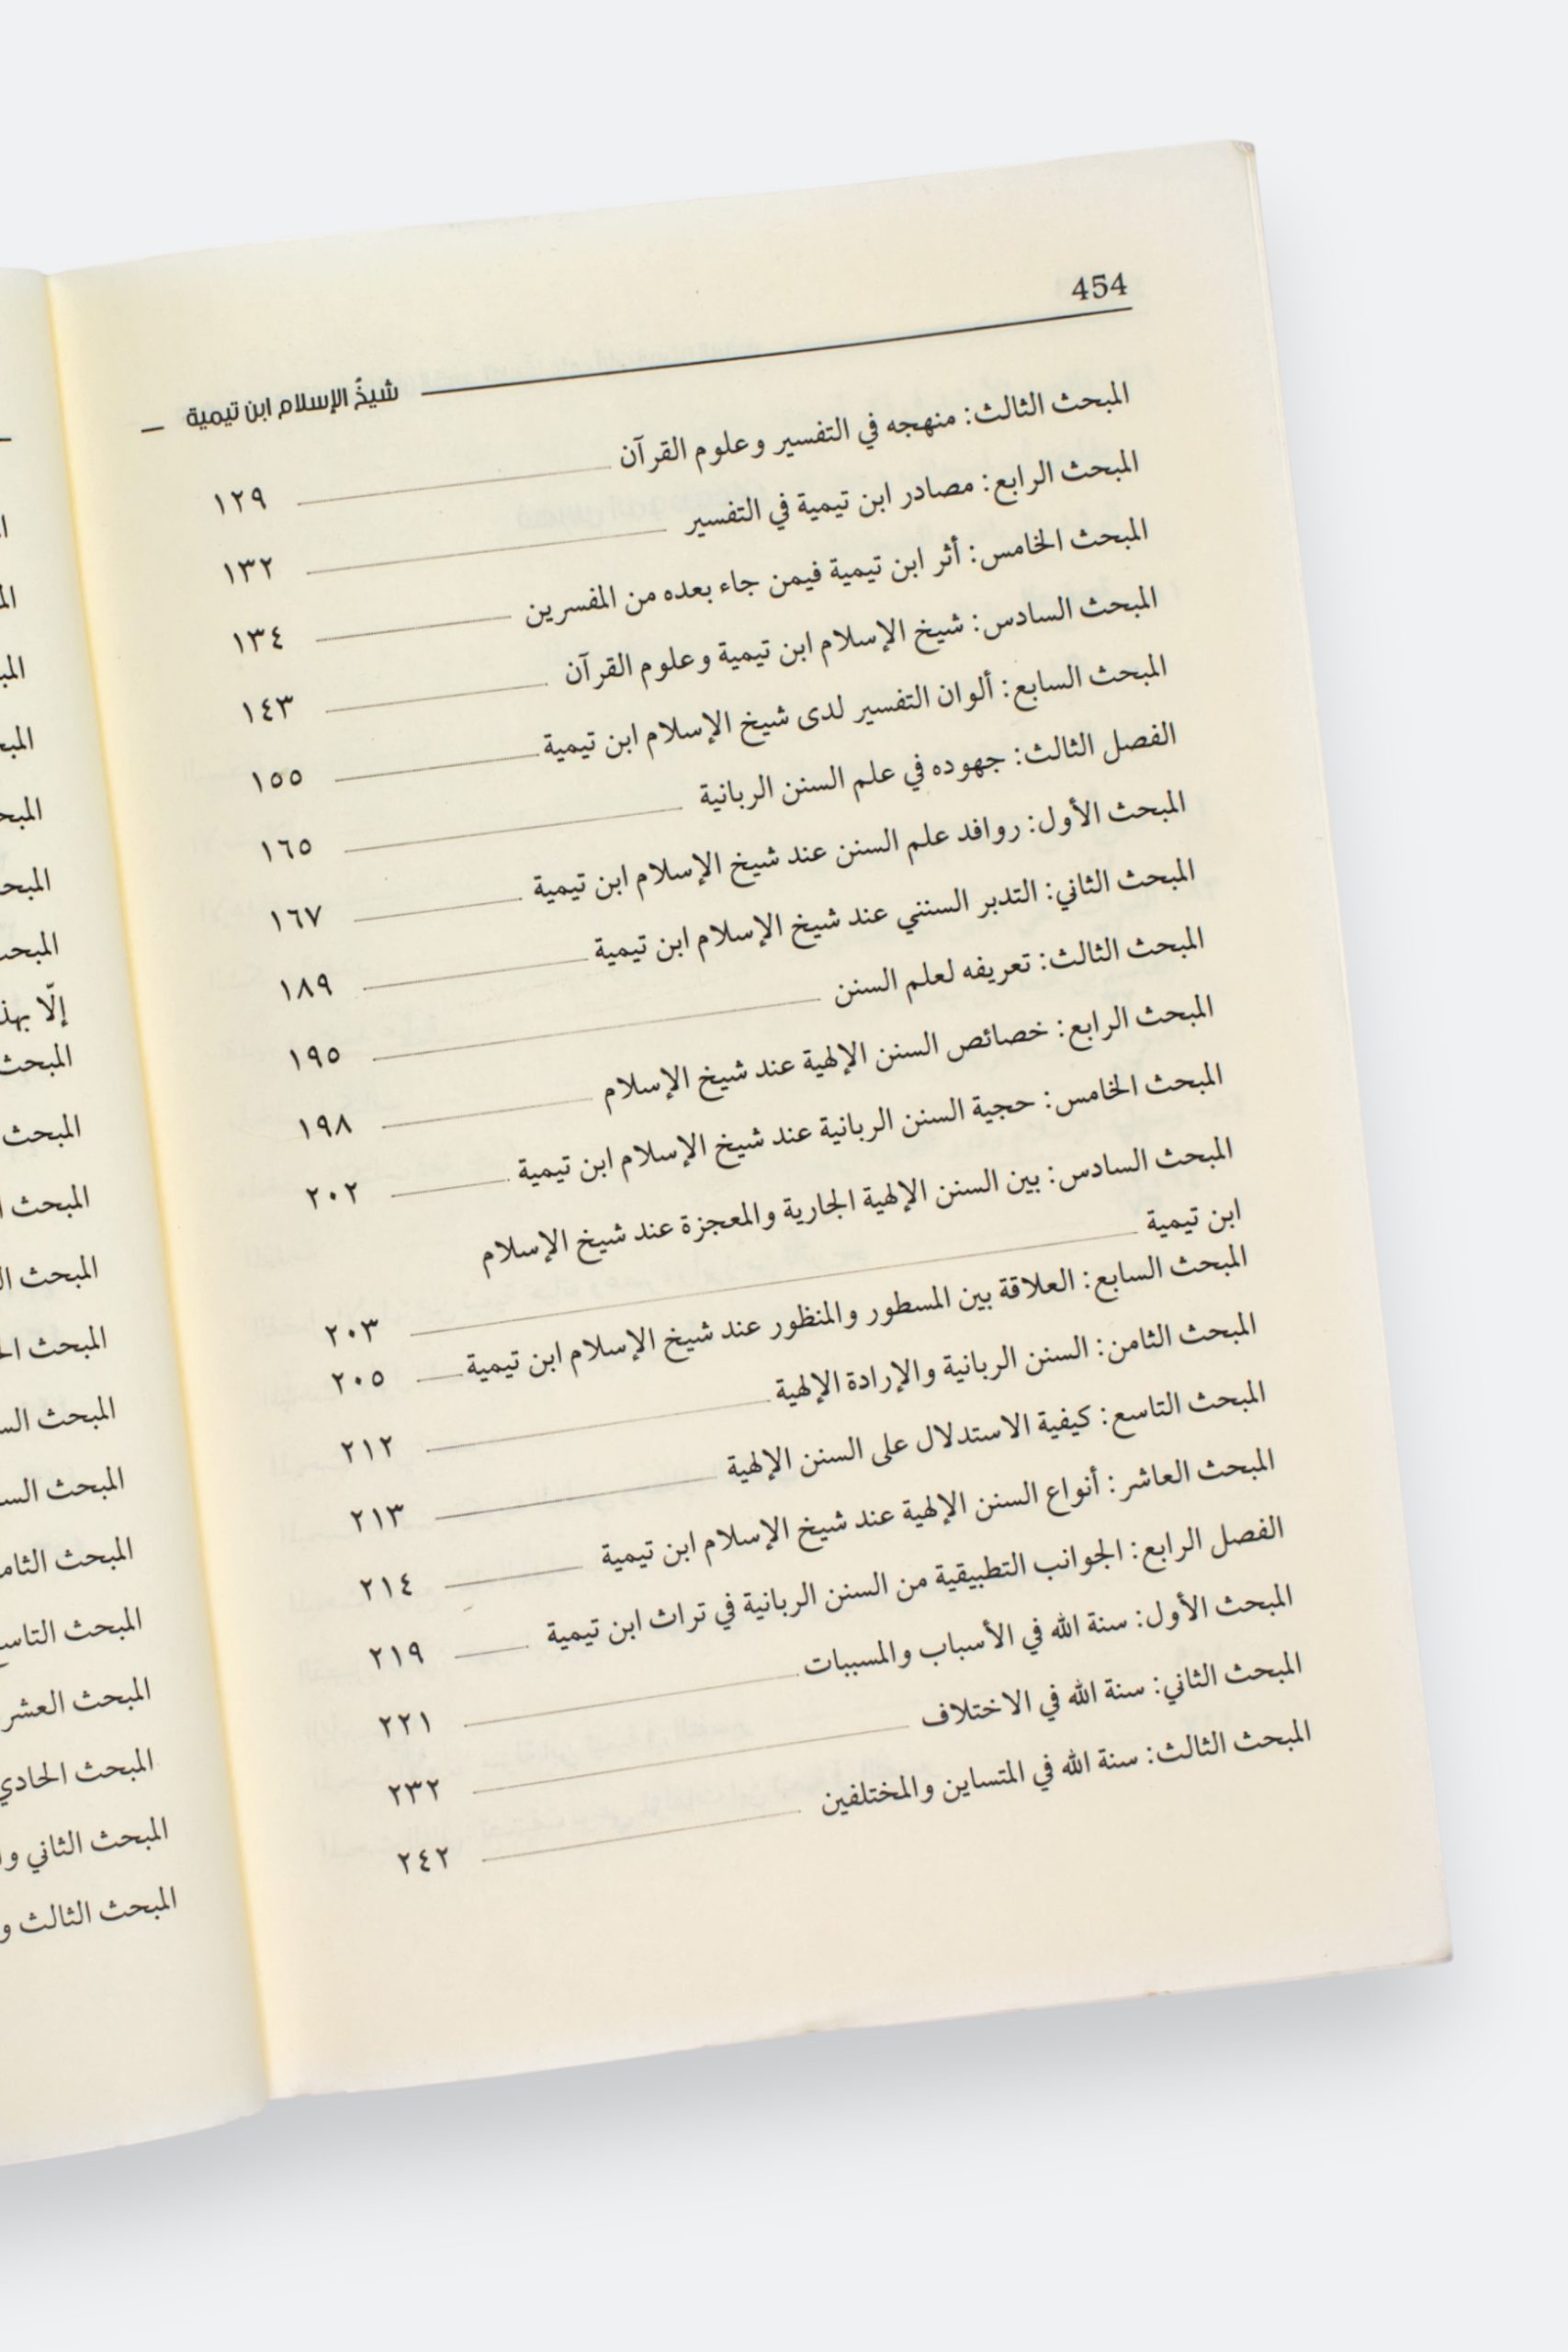 454
شيخُ الإسلام ابن تيمية
المبحث الثالث: منهجه في التفسير وعلوم القرآن ١٢٩
المبحث الرابع: مصادر ابن تيمية في التفسير ١٣٢
المبحث الخامس: أثر ابن تيمية فيمن جاء بعده من المفسرين ١٣٤
المبحث السادس: شيخ الإسلام ابن تيمية وعلوم القرآن ١٤٣
المبحث السابع: ألوان التفسير لدى شيخ الإسلام ابن تيمية ١٥٥
الفصل الثالث: جهوده في علم السنن الربانية ١٦٥
المبحث الأول: روافد علم السنن عند شيخ الإسلام ابن تيمية ١٦٧
المبحث الثاني: التدبر السنني عند شيخ الإسلام ابن تيمية ١٨٩
المبحث الثالث: تعريفه لعلم السنن ١٩٥
المبحث الرابع: خصائص السنن الإلهية عند شيخ الإسلام ١٩٨
المبحث الخامس: حجية السنن الربانية عند شيخ الإسلام ابن تيمية ٢٠٢
المبحث السادس: بين السنن الإلهية الجارية والمعجزة عند شيخ الإسلام
ابن تيمية ٢٠٣
المبحث السابع: العلاقة بين المسطور والمنظور عند شيخ الإسلام ابن تيمية ٢٠٥
المبحث الثامن: السنن الربانية والإرادة الإلهية ٢١٢
المبحث التاسع: كيفية الاستدلال على السنن الإلهية ٢١٣
المبحث العاشر: أنواع السنن الإلهية عند شيخ الإسلام ابن تيمية ٢١٤
الفصل الرابع: الجوانب التطبيقية من السنن الربانية في تراث ابن تيمية ٢١٩
المبحث الأول: سنة الله في الأسباب والمسببات ٢٢١
المبحث الثاني: سنة الله في الاختلاف ٢٣٢
المبحث الثالث: سنة الله في المتساين والمختلفين ٢٤٢
إلّا
المبحث
المبحث
المبحث
المبحث
المبحث
المبحث
المبحث
المبحث
المبحث
المبحث العشر
المبحث الحادي
المبحث الثاني و
المبحث الثالث و